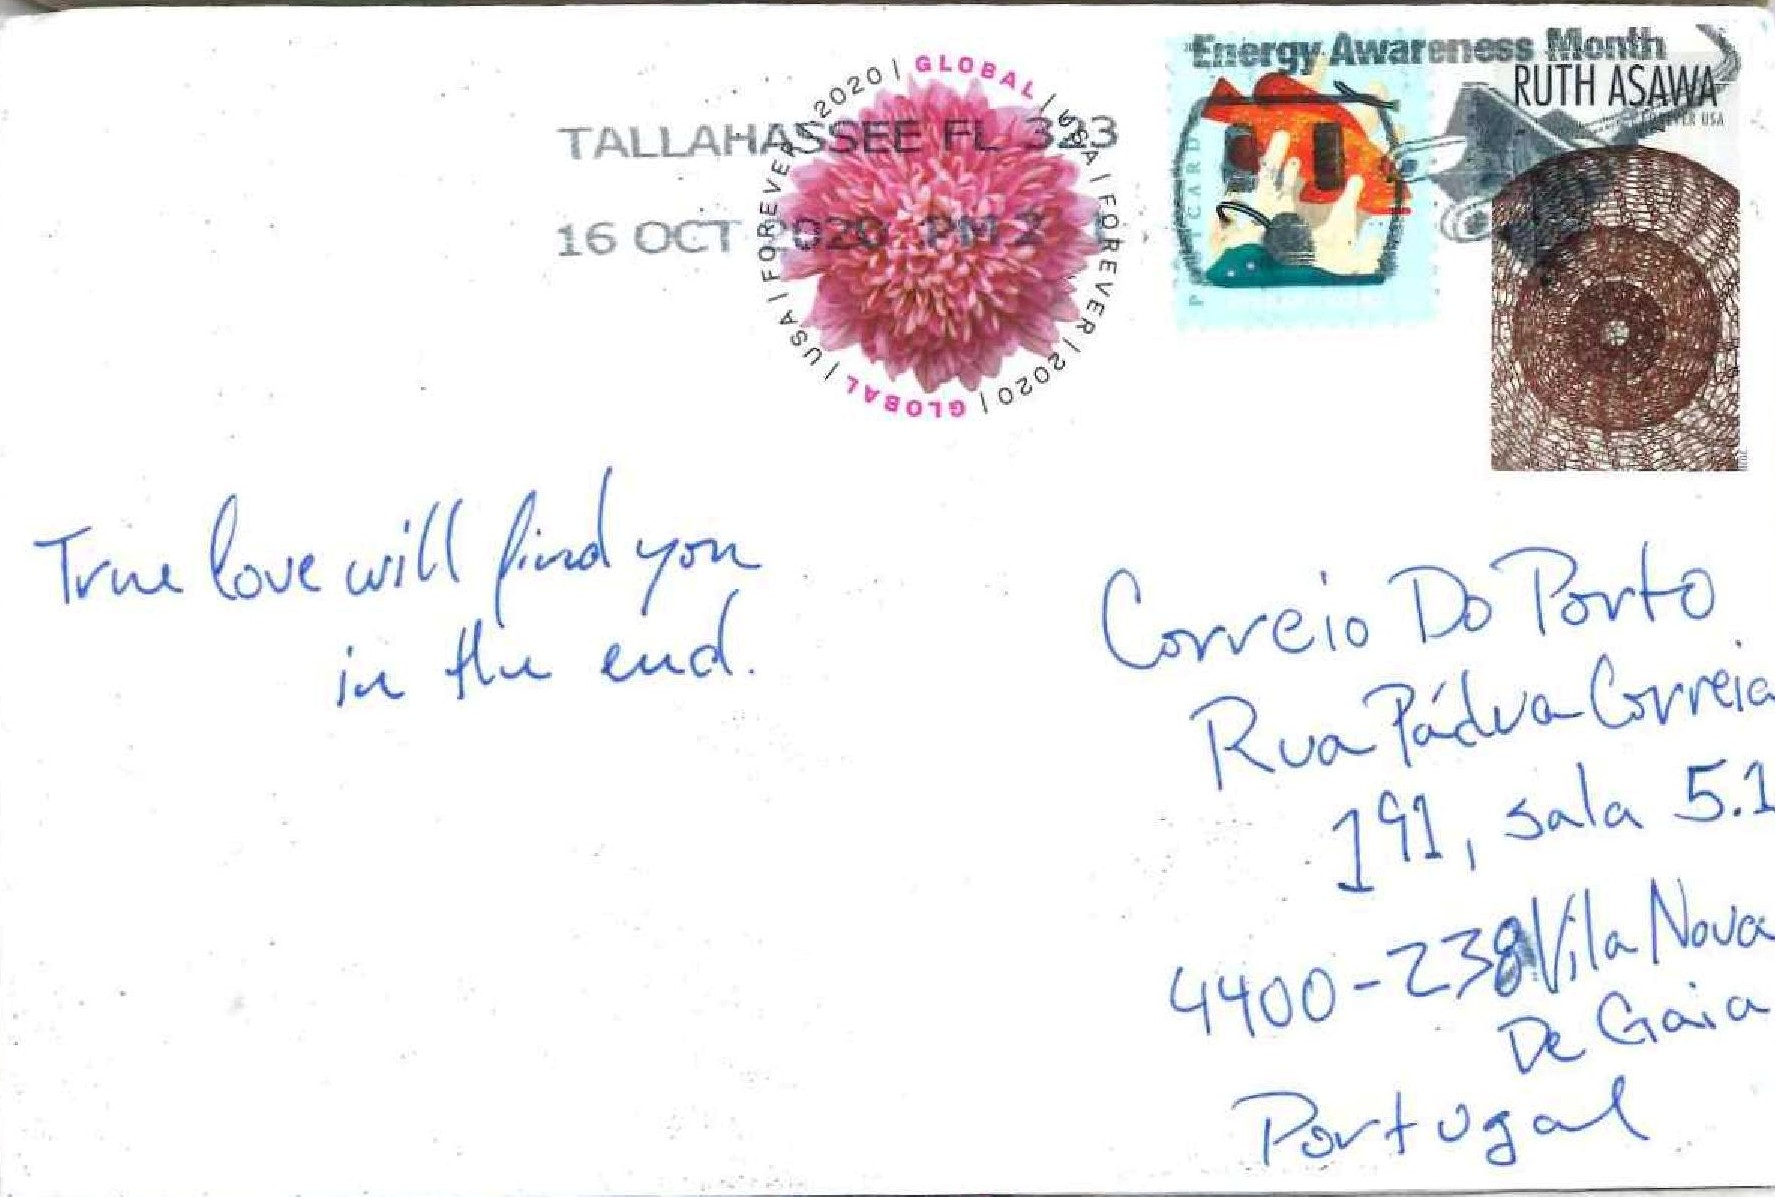 Energy Awareness Month
RUTH ASAWA
FOREVER USA
GLOBAL | USA | FOREVER | 2020 | GLOBAL | USA | FOREVER | 2020 |
TALLAHASSEE FL 323
16 OCT 2020 PM 2
POSTCARD
True love will find you
in the end.
Correio Do Porto
Rua Pádua Correia
191, sala 5.1
4400-238 Vila Nova
De Gaia
Portugal